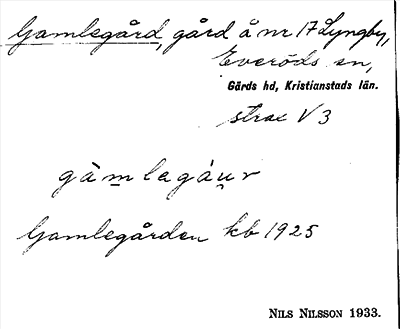 Gamlegård, gård å nr 17 Lyngby,
Everöds sn,
Gärds hd, Kristianstads län.
strax V 3
gàmlegáu̯r
Gamlegården kb 1925
NILS NILSSON 1933.